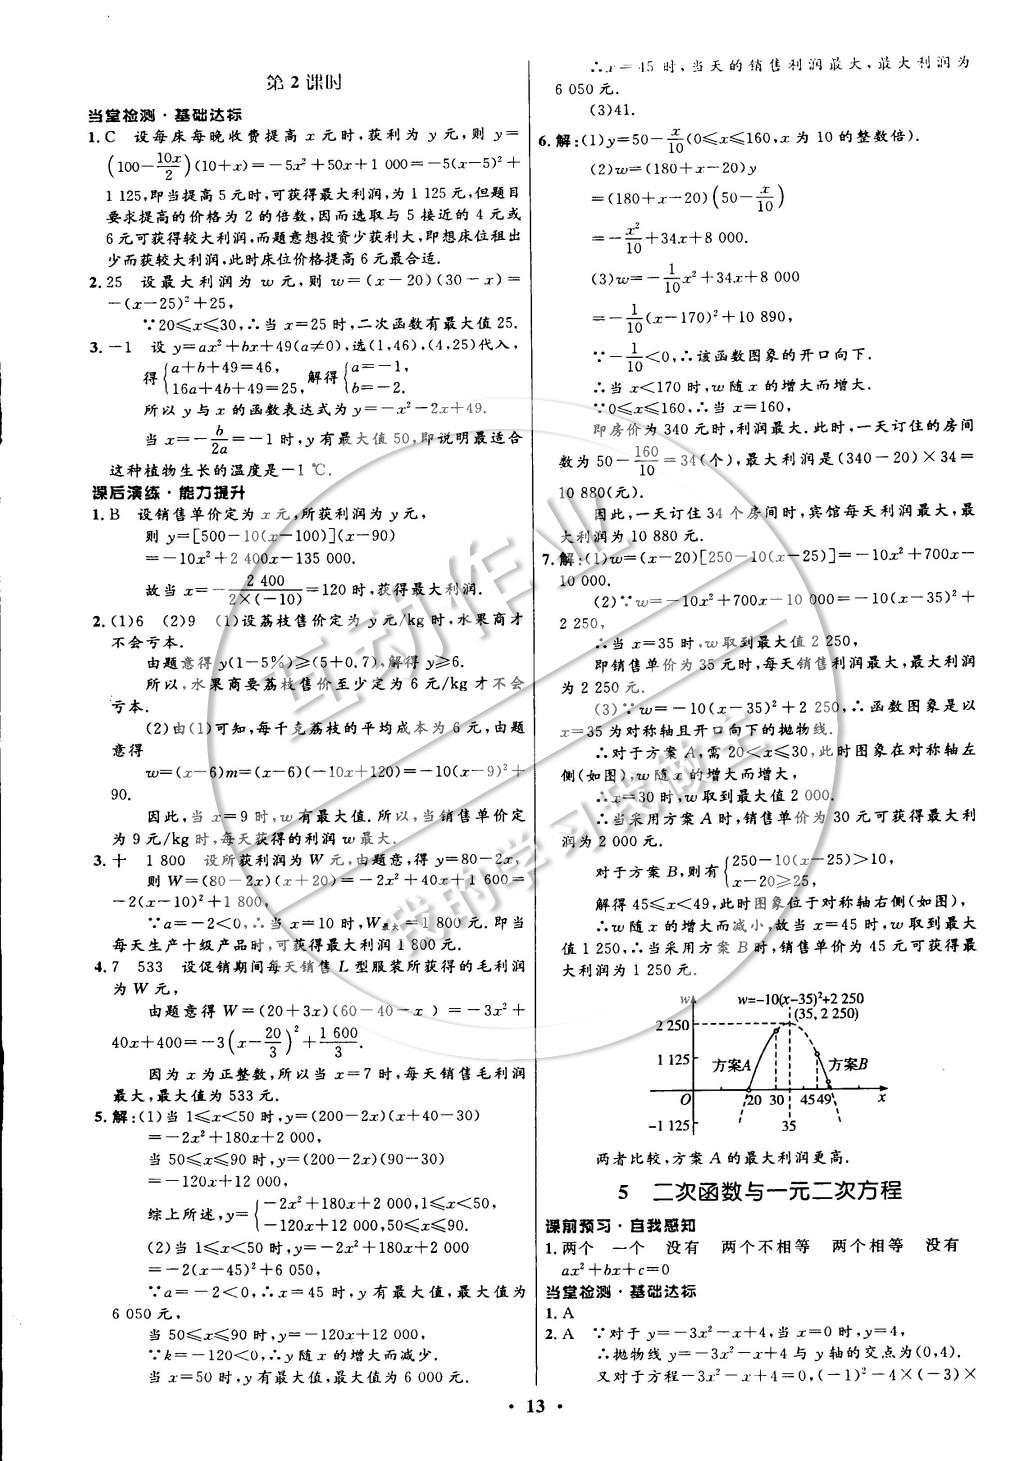 第2课时
当堂检测·基础达标
1.C 设每床每晚收费提高 x 元时,获利为 y 元,则 y=
(100-10x/2)(10+x)=-5x²+50x+1 000=-5(x-5)²+
1 125,即当提高5元时,可获得最大利润,为1 125元,但题目
要求提高的价格为2的倍数,因而选取与5接近的4元或
6元可获得较大利润,而题意想投资少获利大,即想床位租出
少而获较大利润,此时床位价格提高6元最合适.
2.25 设最大利润为 w 元,则 w=(x-20)(30-x)=
-(x-25)²+25,
∵20≤x≤30,∴当 x=25 时,二次函数有最大值25.
3.-1 设 y=ax²+bx+49(a≠0),选(1,46),(4,25)代入,
得{a+b+49=46, 16a+4b+49=25, 解得{a=-1, b=-2.
所以 y 与 x 的函数表达式为 y=-x²-2x+49.
当 x=-b/2a=-1 时,y 有最大值50,即说明最适合
这种植物生长的温度是-1 ℃.
课后演练·能力提升
1.B 设销售单价定为 x 元,所获利润为 y 元,
则 y=[500-10(x-100)](x-90)
=-10x²+2 400x-135 000.
故当 x=-2 400/2×(-10)=120 时,获得最大利润.
2.(1)6 (2)9 (1)设荔枝售价定为 y 元/kg时,水果商才
不会亏本.
由题意得 y(1-5%)≥(5+0.7),解得 y≥6.
所以,水果商要荔枝售价至少定为6元/kg才不会
亏本.
(2)由(1)可知,每千克荔枝的平均成本为6元,由题
意得
w=(x-6)m=(x-6)(-10x+120)=-10(x-9)²+
90.
因此,当 x=9 时,w 有最大值.所以,当销售单价定
为9元/kg时,每天获得的利润 w 最大.
3.十 1 800 设所获利润为 W 元,由题意,得 y=80-2x,
则 W=(80-2x)(x+20)=-2x²+40x+1 600=
-2(x-10)²+1 800,
∵a=-2<0,∴当 x=10 时,W最大=1 800元.即当
每天生产十级产品时,可获得最大利润1 800元.
4.7 533 设促销期间每天销售 L 型服装所获得的毛利润
为 W 元,
由题意得 W=(20+3x)(60-40-x)=-3x²+
40x+400=-3(x-20/3)²+1 600/3.
因为 x 为正整数,所以当 x=7 时,每天销售毛利润
最大,最大值为533元.
5.解:(1)当 1≤x<50 时,y=(200-2x)(x+40-30)
=-2x²+180x+2 000,
当 50≤x≤90 时,y=(200-2x)(90-30)
=-120x+12 000,
综上所述,y={-2x²+180x+2 000,1≤x<50, -120x+12 000,50≤x≤90.
(2)当 1≤x<50 时,y=-2x²+180x+2 000
=-2(x-45)²+6 050,
∵a=-2<0,∴x=45 时,y 有最大值,最大值为
6 050元,
当 50≤x≤90 时,y=-120x+12 000,
∵k=-120<0,∴y 随 x 的增大而减少.
当 x=50 时,y 有最大值,最大值为6 000元.
∴x=45 时,当天的销售利润最大,最大利润为
6 050元.
(3)41.
6.解:(1)y=50-x/10(0≤x≤160,x 为10的整数倍).
(2)w=(180+x-20)y
=(180+x-20)(50-x/10)
=-x²/10+34x+8 000.
(3)w=-1/10x²+34x+8 000
=-1/10(x-170)²+10 890,
∵-1/10<0,∴该函数图象的开口向下.
∴当 x<170 时,w 随 x 的增大而增大.
∵0≤x≤160,∴当 x=160,
即房价为340元时,利润最大.此时,一天订住的房间
数为 50-160/10=34(个),最大利润是(340-20)×34=
10 880(元).
因此,一天订住34个房间时,宾馆每天利润最大,最
大利润为10 880元.
7.解:(1)w=(x-20)[250-10(x-25)]=-10x²+700x-
10 000.
(2)∵w=-10x²+700x-10 000=-10(x-35)²+
2 250,
∴当 x=35 时,w 取到最大值2 250,
即销售单价为35元时,每天销售利润最大,最大利润
为2 250元.
(3)∵w=-10(x-35)²+2 250,∴函数图象是以
x=35 为对称轴且开口向下的抛物线.
∴对于方案 A,需 20<x≤30,此时图象在对称轴左
侧(如图),w 随 x 的增大而增大,
∴x=30 时,w 取到最大值2 000.
∴当采用方案 A 时,销售单价为30元可获得最大利
润为2 000元.
对于方案 B,则有{250-10(x-25)>10, x-20≥25,
解得 45≤x<49,此时图象位于对称轴右侧(如图),
∴w 随 x 的增大而减小,故当 x=45 时,w 取到最大
值1 250,∴当采用方案 B 时,销售单价为45元可获得最
大利润为1 250元.
w w=-10(x-35)²+2 250
(35, 2 250)
2 250
1 125 方案A 方案B
O 20 30 45 49 x
-1 125 35
两者比较,方案 A 的最大利润更高.
5 二次函数与一元二次方程
课前预习·自我感知
1.两个 一个 没有 两个不相等 两个相等 没有
ax²+bx+c=0
当堂检测·基础达标
1.A
2.A ∵对于 y=-3x²-x+4,当 x=0 时,y=4,
∴抛物线 y=-3x²-x+4 与 y 轴的交点为(0,4).
又对于方程-3x²-x+4=0,(-1)²-4×(-3)×
· 13 ·
互动作业
我的学习我做主